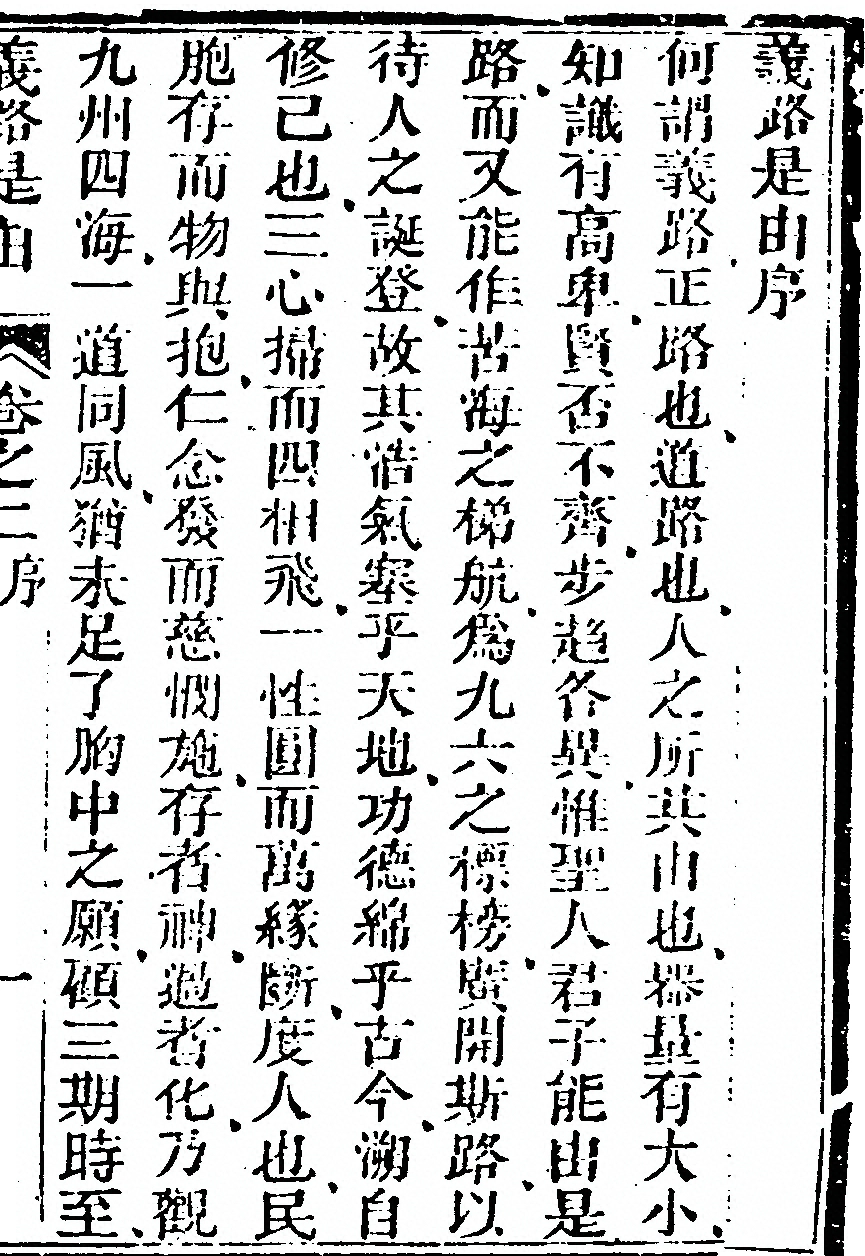 義路是由序
何謂義路正路也道路也人之所共由也器量有大小
知識有高卑賢否不齊步趨各異惟聖人君子能由是
路而又能作苦海之梯航爲九六之標榜廣開斯路以
待人之誕登故其浩氣塞乎天地功德綿乎古今溯自
修己也三心掃而四相飛一性圓而萬緣斷度人也民
胞存而物與抱仁念發而慈憫施存者神過者化乃觀
九州四海一道同風猶未足了胸中之願顧三期時至
義路是由 卷之二序 一